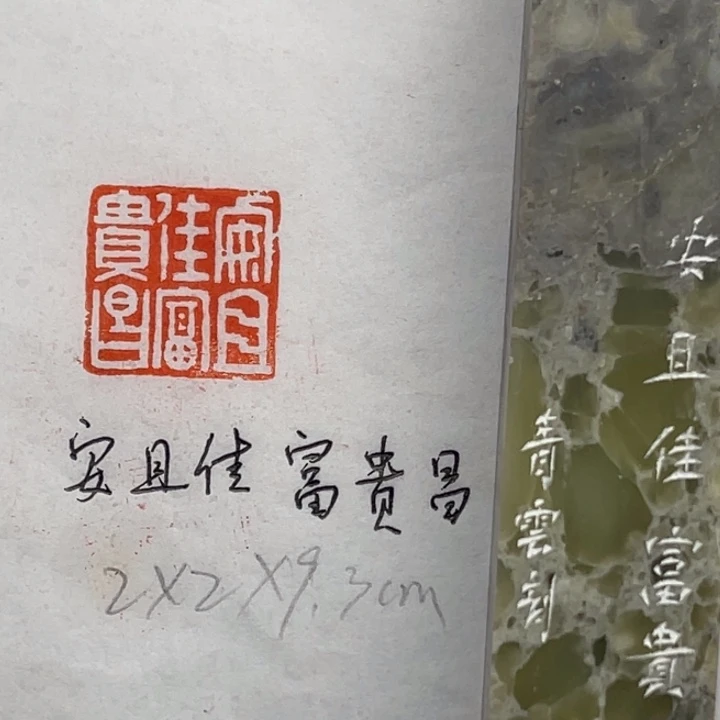 安且
佳富
貴昌
安且佳富貴昌
2X2X9.3cm
安且佳富貴
青雲刻